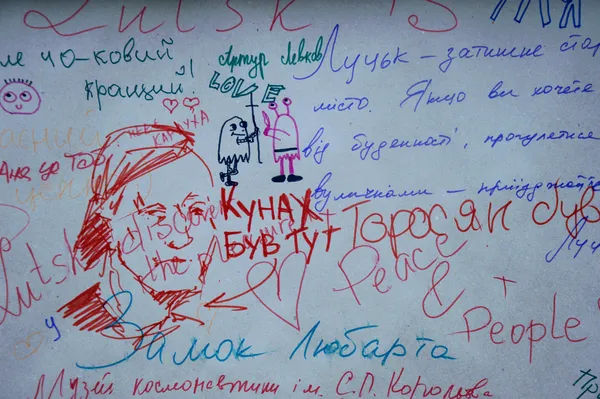 Lutsk is
ле чо-ковий
кращий!
Артур Левков
LOVE
Луцьк - затишне
місто. Якщо ви хочете
від буденності, прогулятися
вуличками -
КУНАХ
БУВ ТУТ
Торосян був
discover
the
Lutsk
Peace
&
People
у
Замок Любарта
Музей космонавтики ім. С.П. Корольова